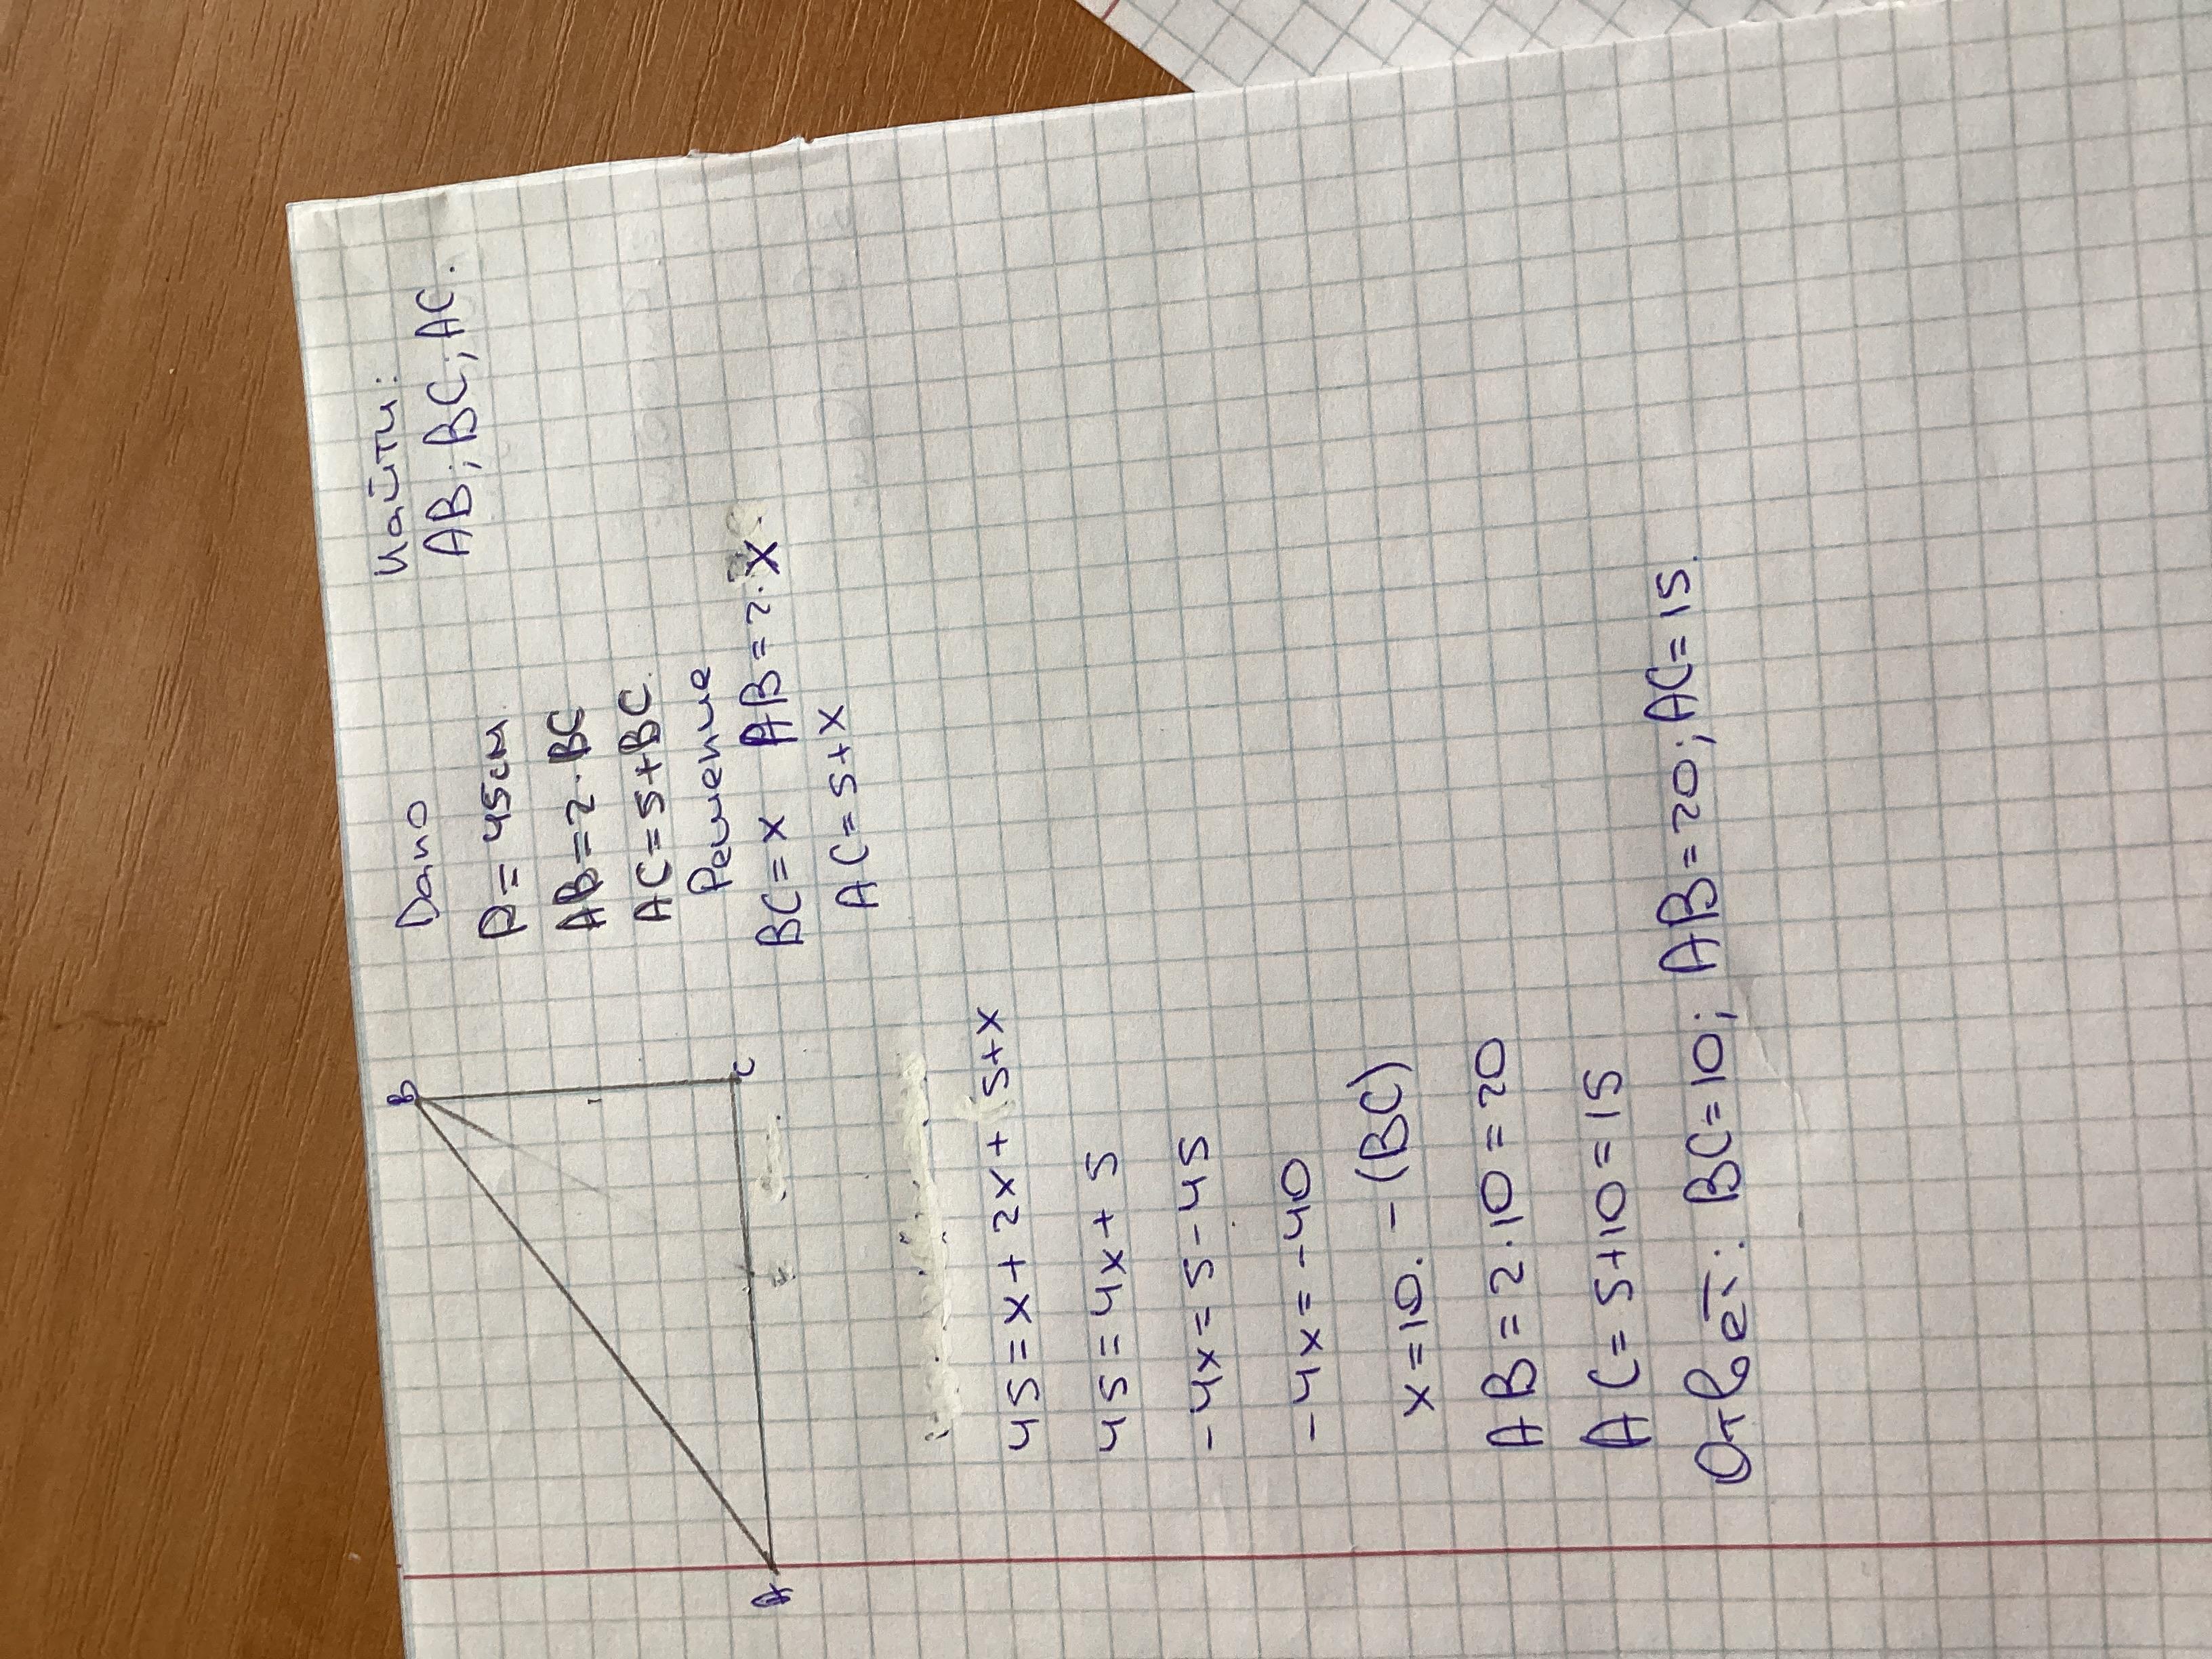 B
A
C
Дано
P = 45см
AB = 2 · BC
AC = 5 + BC.
Найти:
AB; BC; AC.
Решение
BC = x AB = 2 · x
AC = 5 + x
45 = x + 2x + 5 + x
45 = 4x + 5
-4x = 5 - 45
-4x = -40
x = 10. - (BC)
AB = 2 · 10 = 20
AC = 5 + 10 = 15
Ответ: BC = 10; AB = 20; AC = 15.